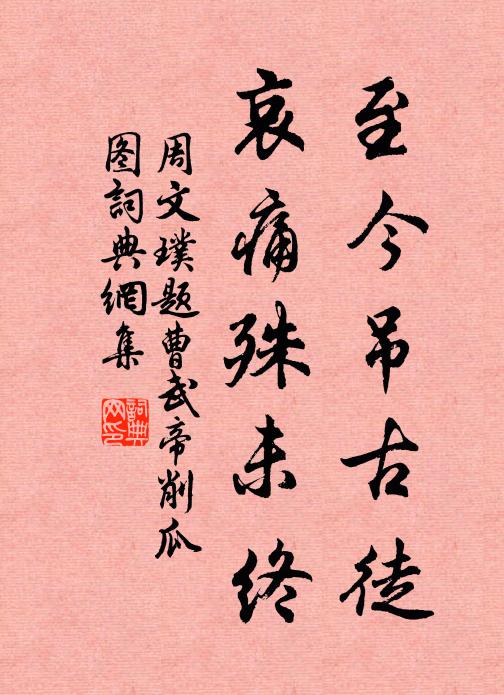 至今吊古徒
哀痛殊未终
周文璞题曹武帝削瓜
图词典網集
詞典网印